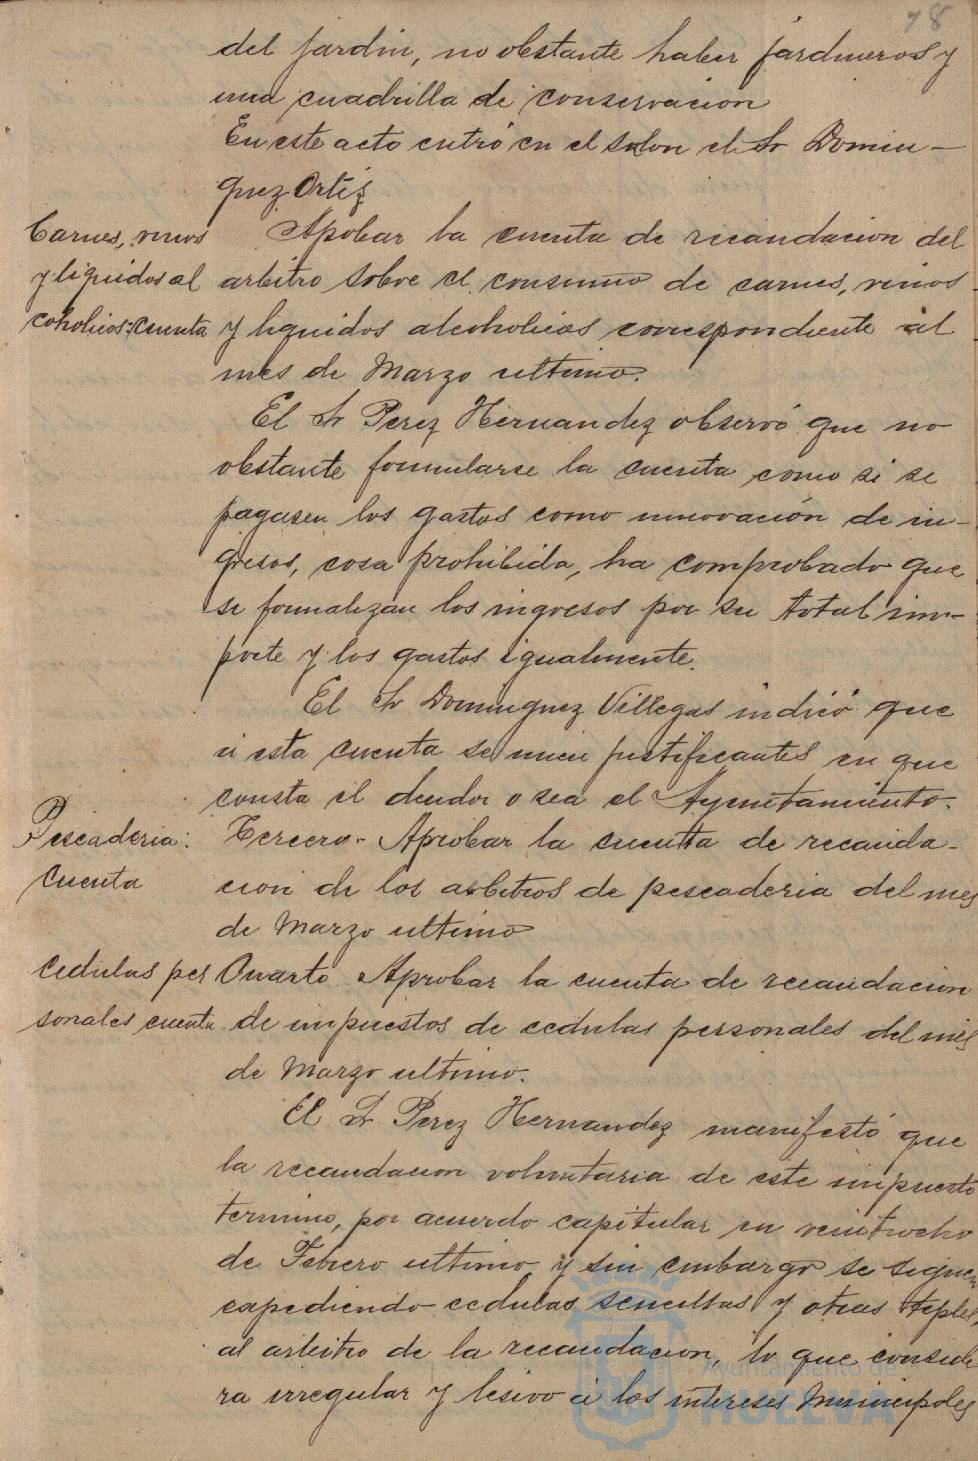 78
del jardin, no obstante haber jardineros y
una cuadrilla de conservacion
En este acto entró en el salon el Sr Domin-
guez Ortiz
Carnes, vinos
y liquidos al
coholicos: cuenta
Aprobar la cuenta de recaudacion del
arbitro sobre el consumo de carnes, vinos
y liquidos alcoholicos correspondiente al
mes de Marzo ultimo.
El Sr Perez Hernandez observó que no
obstante formularse la cuenta como si se
pagasen los gastos como innovación de in-
gresos, cosa prohibida, ha comprobado que
se formalizan los ingresos por su total im-
porte y los gastos igualmente.
El Sr Dominguez Villegas indicó que
a esta cuenta se unen justificantes en que
consta el deudor o sea el Ayuntamiento.
Pescaderia:
cuenta
Tercero- Aprobar la cuenta de recauda-
cion de los arbitros de pescaderia del mes
de Marzo ultimo
cedulas per
sonales cuenta
Cuarto. Aprobar la cuenta de recaudacion
de impuestos de cedulas personales del mes
de Marzo ultimo.
El Sr Perez Hernandez manifestó que
la recaudacion voluntaria de este impuesto
termino, por acuerdo capitular en veintiocho
de Febrero ultimo y sin embargo se siguen
expediendo cedulas sencillas y otras
al arbitro de la recaudacion, lo que conside
ra irregular y lesivo a los intereses Municipales
Ayuntamiento de
HUELVA